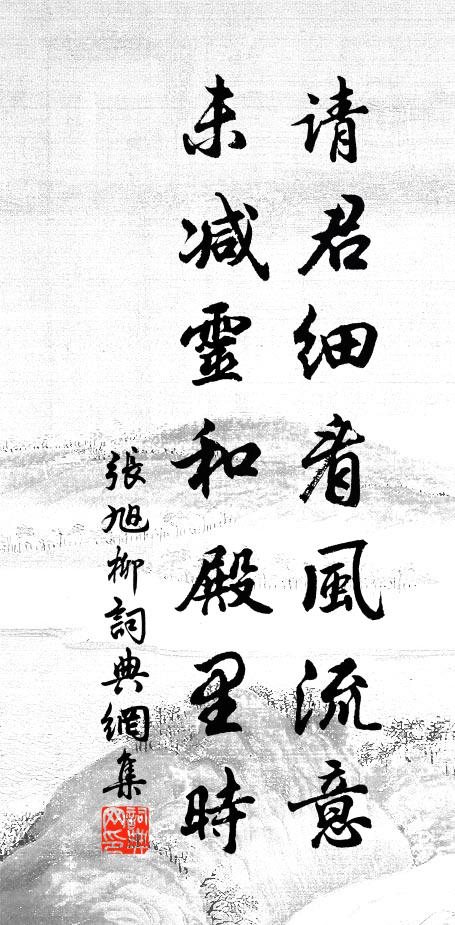 请君细看風流意
未减靈和殿里時
張旭柳詞典網集